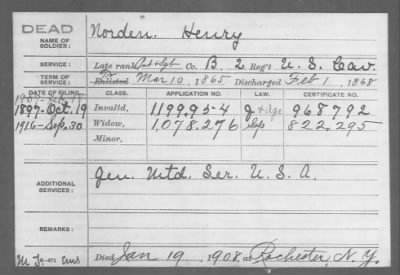 DEAD
NAME OF SOLDIER: Norden. Henry
SERVICE: Late rank Co. B, 2 Reg't U. S. Cav.
TERM OF SERVICE: Enlisted Mar 10, 1865 Discharged Feb 1, 1868
DATE OF FILING. CLASS. APPLICATION NO. LAW. CERTIFICATE NO.
1897-Oct. 19 Invalid, 1199.954 968792
1916-Sep. 30 Widow, 1,078.276 822,295
Minor,
ADDITIONAL SERVICES: Gen. Mtd. Ser. U. S. A.
REMARKS:
Died Jan 19, 1908, at Rochester, N. Y.